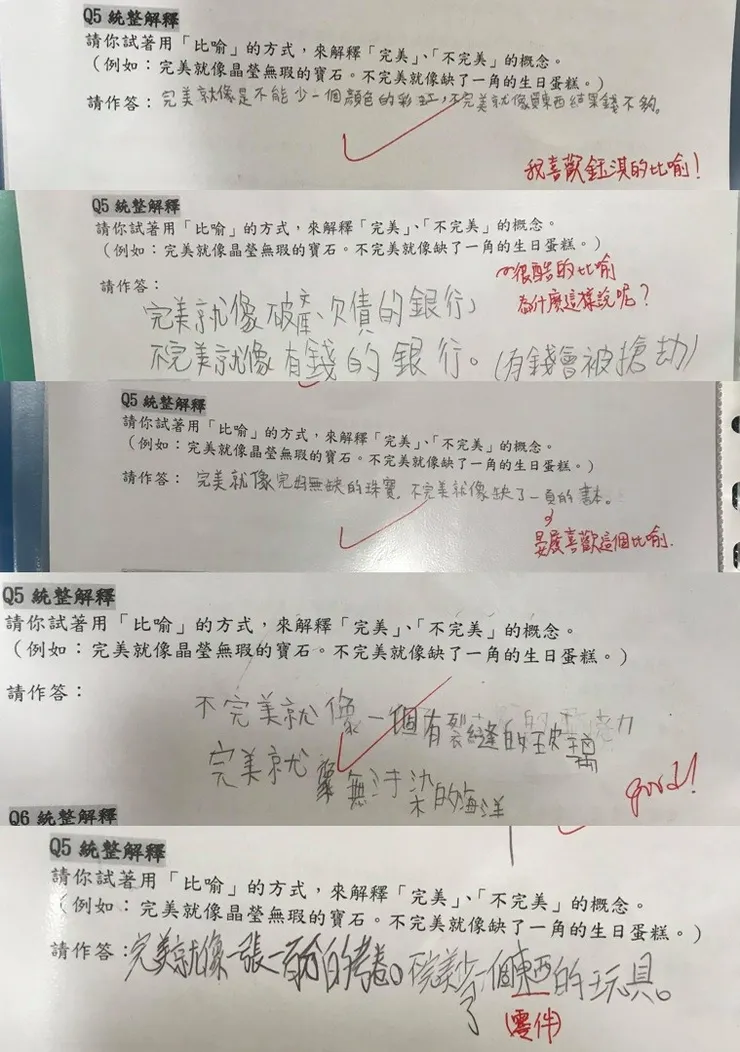 Q5 統整解釋
請你試著用「比喻」的方式，來解釋「完美」、「不完美」的概念。
（例如：完美就像晶瑩無瑕的寶石。不完美就像缺了一角的生日蛋糕。）
請作答：完美就像是不能少一個顏色的彩虹，不完美就像買東西結果錢不夠。
我喜歡鈺淇的比喻！
Q5 統整解釋
請你試著用「比喻」的方式，來解釋「完美」、「不完美」的概念。
（例如：完美就像晶瑩無瑕的寶石。不完美就像缺了一角的生日蛋糕。）
很酷的比喻
為什麼這樣說呢？
請作答：
完美就像破產、欠債的銀行，
不完美就像有錢的銀行。(有錢會被搶劫)
Q5 統整解釋
請你試著用「比喻」的方式，來解釋「完美」、「不完美」的概念。
（例如：完美就像晶瑩無瑕的寶石。不完美就像缺了一角的生日蛋糕。）
請作答：完美就像完好無缺的珠寶，不完美就像缺了一頁的書本。
喜歡這個比喻.
Q5 統整解釋
請你試著用「比喻」的方式，來解釋「完美」、「不完美」的概念。
（例如：完美就像晶瑩無瑕的寶石。不完美就像缺了一角的生日蛋糕。）
請作答：
不完美就像一個有裂縫的玻璃
完美就像無汙染的海洋
good!
Q6 統整解釋
Q5 統整解釋
請你試著用「比喻」的方式，來解釋「完美」、「不完美」的概念。
（例如：完美就像晶瑩無瑕的寶石。不完美就像缺了一角的生日蛋糕。）
請作答：完美就像一張一百分的考卷。不完美少了一個東西的玩具。
(零件)